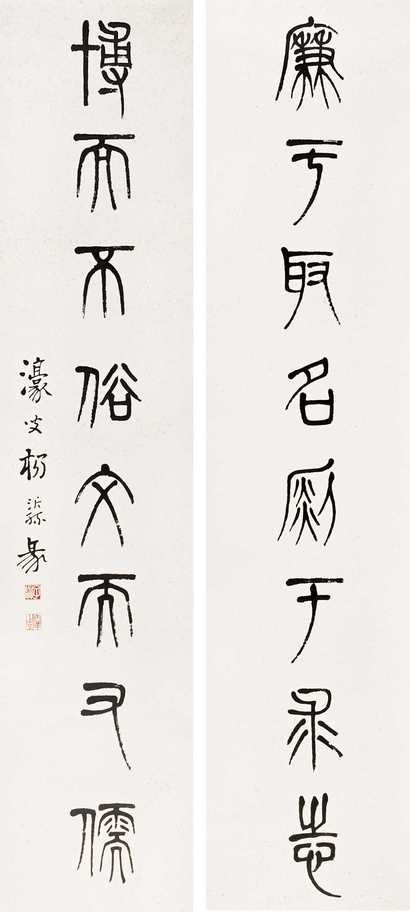 廉于取名于求志
博而不俗文而又儒
濠叟楊沂孫篆